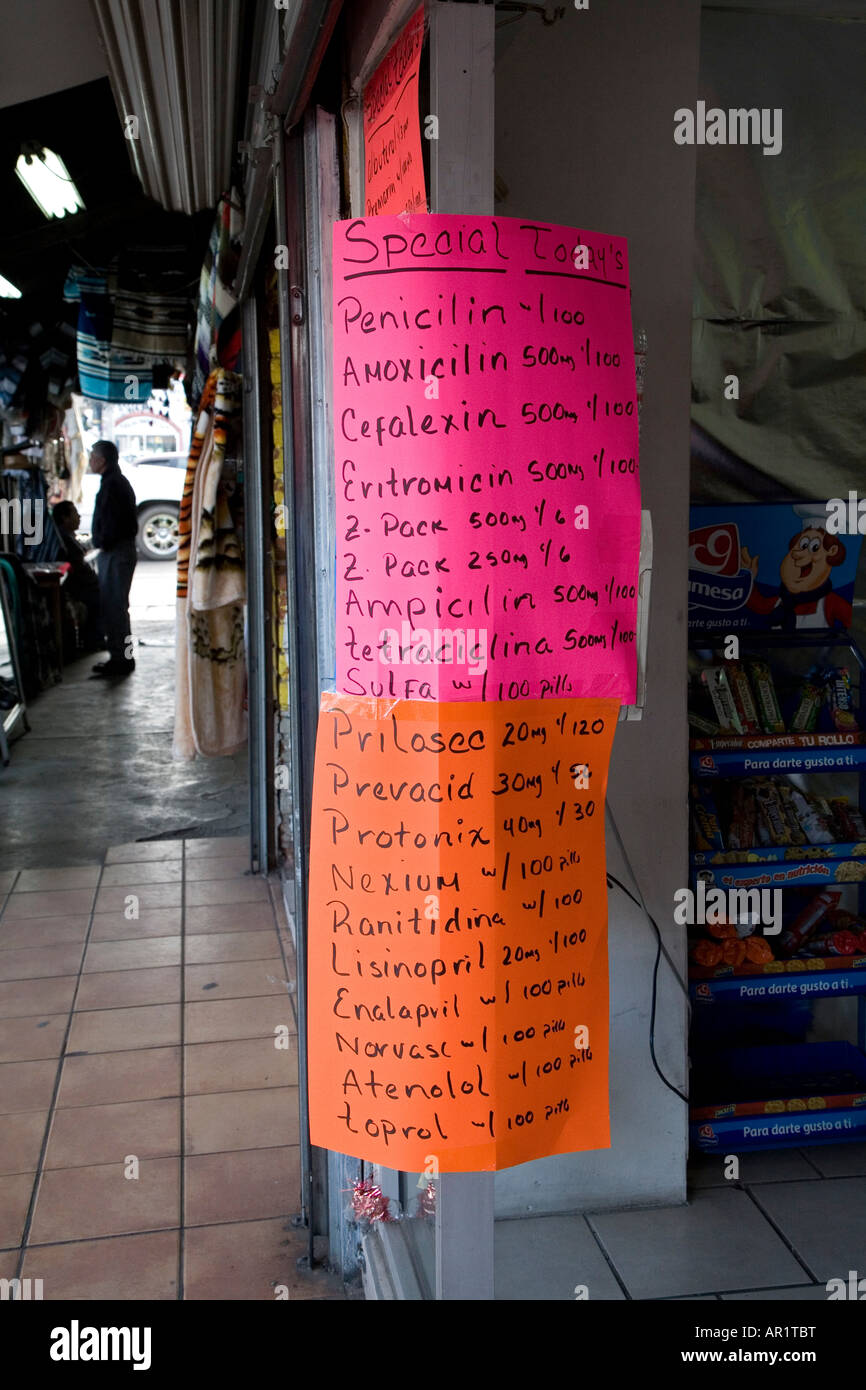 Special Today's
Albuterol
Premarin
Special Today's
Penicilin w/100
Amoxicilin 500mg w/100
Cefalexin 500mg w/100
Eritromicin 500mg w/100
Z-Pack 500mg w/6
Z-Pack 250mg w/6
Ampicilin 500mg w/100
tetraciclina 500mg w/100
Sulfa w/100 pills
Prilosec 20mg w/120
Prevacid 30mg w/
Protonix 40mg w/30
Nexium w/100 pills
Ranitidina w/100
Lisinopril 20mg w/100
Enalapril w/100 pills
Norvasc w/100 pills
Atenolol w/100 pills
toprol w/100 pills
amesa
te gusto a ti
Emperador COMPARTE TU ROLLO
Para darte gusto a ti.
Para darte gusto a ti.
Para darte gusto a ti.
alamy
Image ID: AR1TBT
www.alamy.com